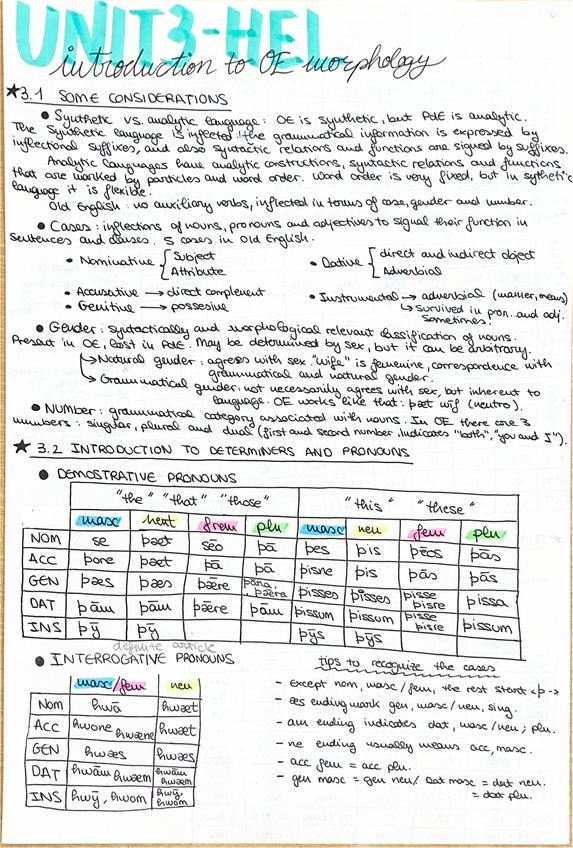 UNIT3-HEL
introduction to OE morphology
★3.1 SOME CONSIDERATIONS
● Synthetic vs. analytic language: OE is synthetic, but PdE is analytic.
The synthetic language is inflected: the grammatical information is expressed by
inflectional suffixes, and also syntactic relations and functions are signed by suffixes.
Analytic languages have analytic constructions, syntactic relations and functions
that are worked by particles and word order. Word order is very fixed, but in sythetic
language it is flexible.
Old English: no auxiliary verbs, inflected in terms of case, gender and number.
● Cases: inflections of nouns, pronouns and adjectives to signal their function in
sentences and clauses. 5 cases in Old English.
• Nominative { Subject
Attribute
• Dative { direct and indirect object
Adverbial
• Accusative → direct complement
• Genitive → possesive
• Instrumental → adverbial (manner, means)
↳ survived in pron. and adj.
sometimes!
● Gender: syntactically and morphological relevant classification of nouns.
Present in OE, lost in PdE. May be determined by sex, but it can be arbitrary.
↳ Natural gender: agrees with sex "wife" is femenine, correspondence with
grammatical and natural gender.
↳ Grammatical gender: not necessarily agrees with sex, but inherent to
language. OE works like that: þæt wīf (neutro).
● Number: grammatical category associated with nouns. In OE there are 3
numbers: singular, plural and dual (first and second number. Indicates "both", "you and I").
★ 3.2 INTRODUCTION TO DETERMINERS AND PRONOUNS
● DEMOSTRATIVE PRONOUNS
"the" "that" "those" "this" "these"
masc neut fem plu masc neu fem plu
NOM se þæt sēo þā þes þis þēos þās
ACC þone þæt þā þā þisne þis þās þās
GEN þæs þæs þǣre þāra, þǣra þisses þisses þisse þisre þissa
DAT þām þām þǣre þām þissum þissum þisse þisre þissum
INS þȳ þȳ þȳs þȳs
definite article
● INTERROGATIVE PRONOUNS
masc/fem neu
Nom hwā hwæt
Acc hwone hwæne hwæt
GEN hwæs hwæs
DAT hwām hwǣm hwām hwǣm
INS hwȳ, hwom hwȳ, hwom
tips to recognize the cases
- Except nom, masc/fem, the rest start <þ->
- æs ending work gen, masc/neu, sing.
- am ending indicates dat, masc/neu; plu.
- ne ending usually means acc, masc.
- acc fem = acc plu.
- gen masc = gen neu/ Dat masc = dat neu.
= dat plu.